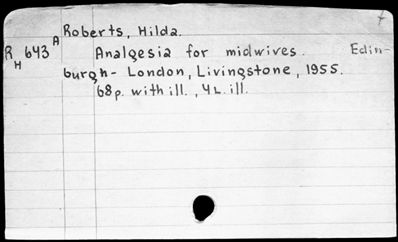 Roberts, Hilda.
R H 643 A
Analgesia for midwives. Edin-
burgh - London, Livingstone, 1955.
68p. with ill., 4 L. ill.